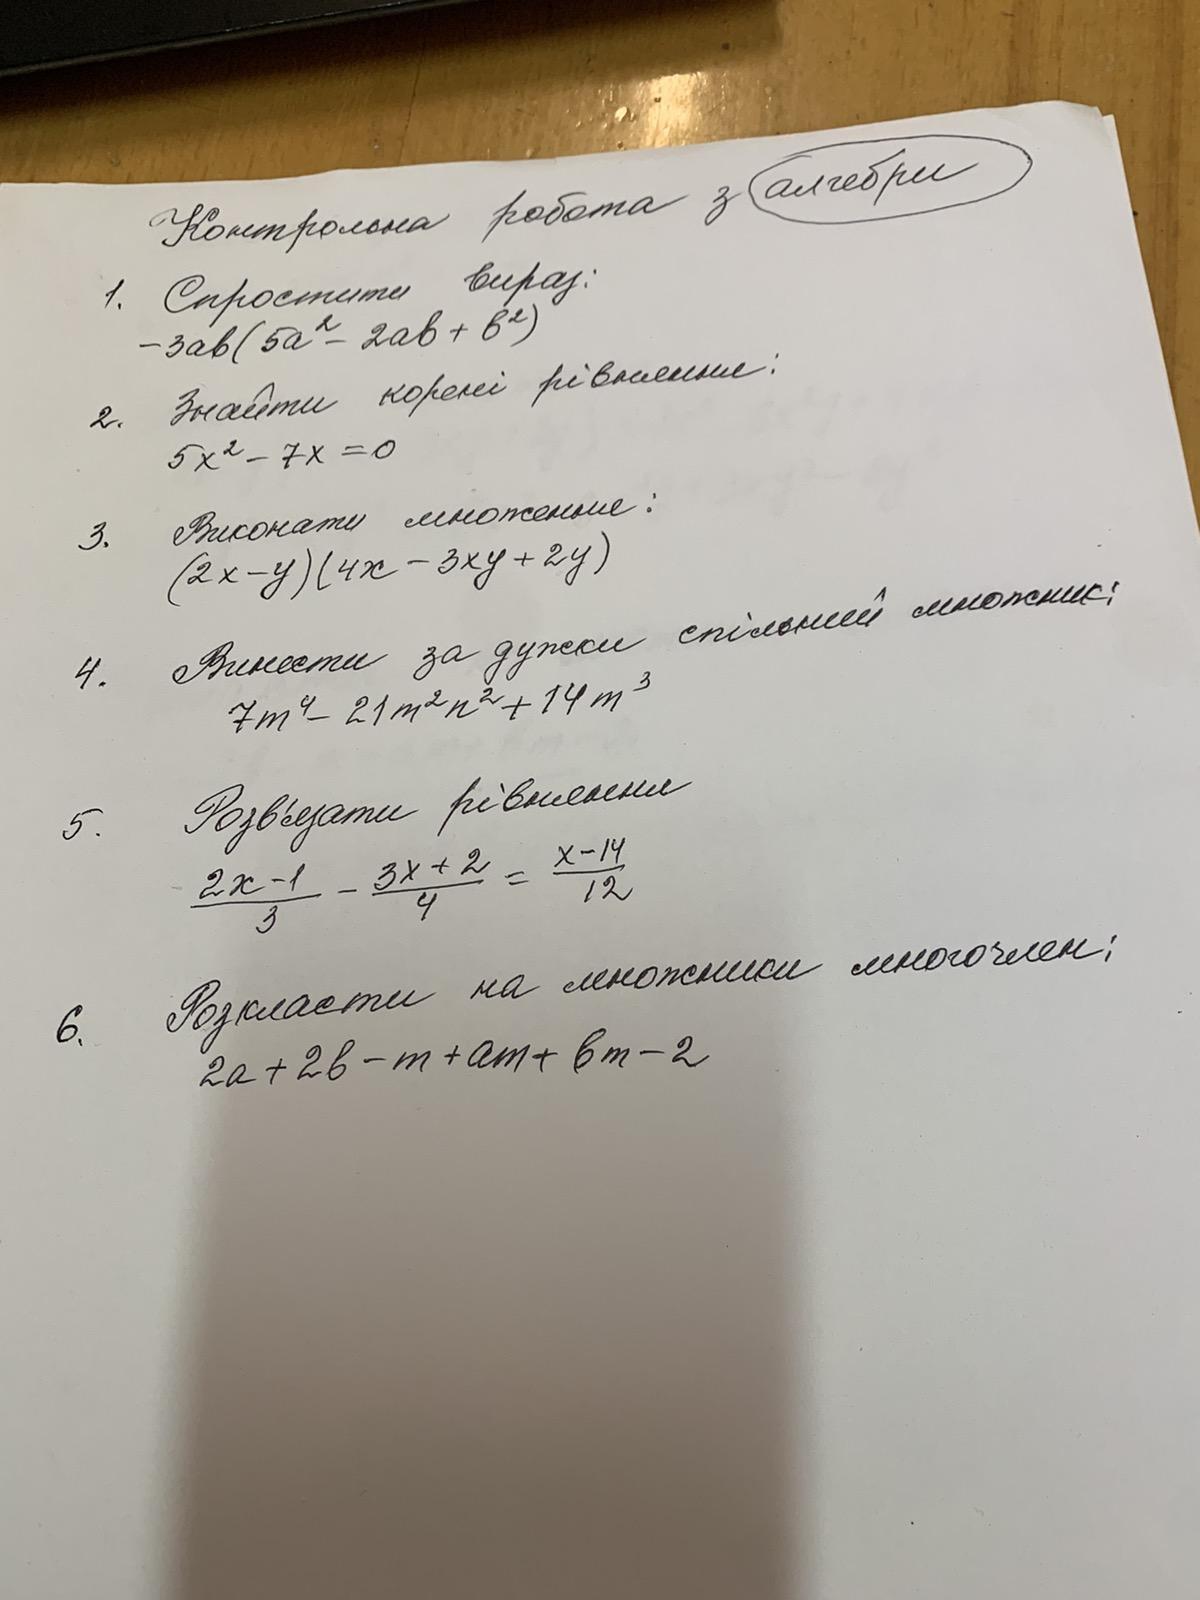 Контрольна робота з алгебри
1. Спростити вираз:
-3ab(5a² - 2ab + b²)
2. Знайти корені рівняння:
5x² - 7x = 0
3. Виконати множення:
(2x - y)(4x - 3xy + 2y)
4. Винести за дужки спільний множник:
7m⁴ - 21m²n² + 14m³
5. Розв'язати рівняння
(2x-1)/3 - (3x+2)/4 = (x-14)/12
6. Розкласти на множники многочлен:
2a + 2b - m + am + bm - 2